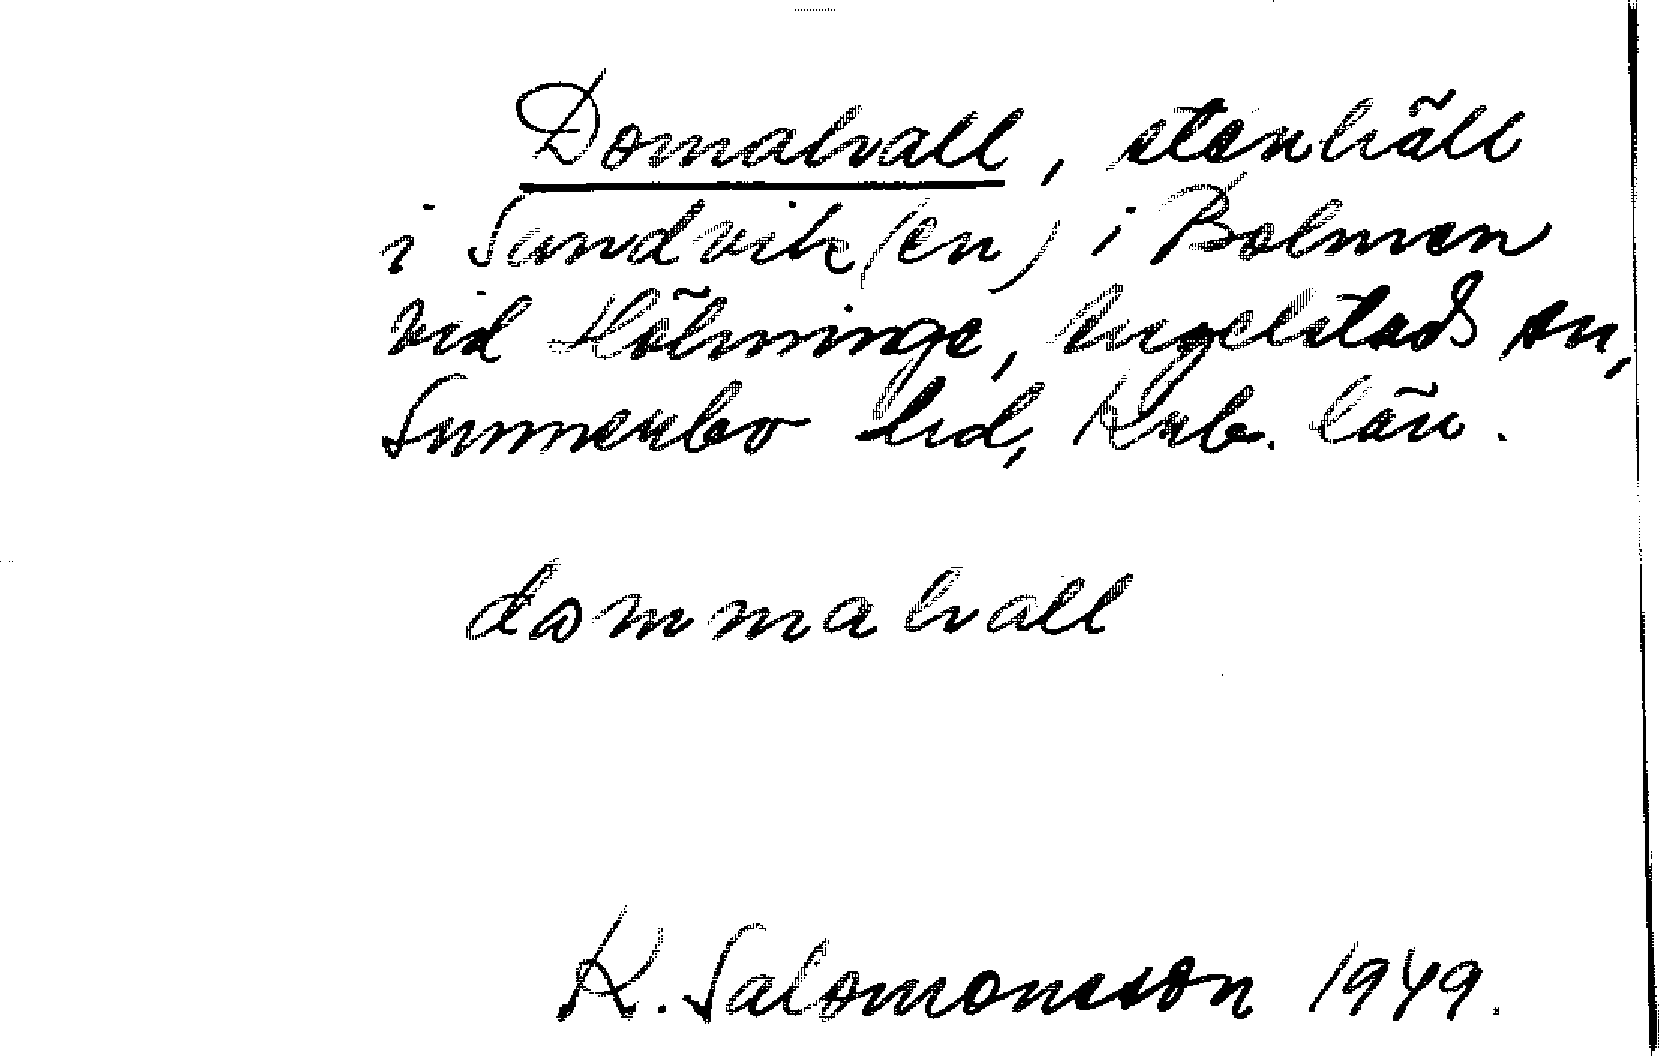 Domahvall, stenhäll
i Sundvik(en) i Bolmen
vid Höhninge, Angelstads sn,
Sunnerbo hd, Krb. län.
dommahvall
K. Salomonsson 1949.